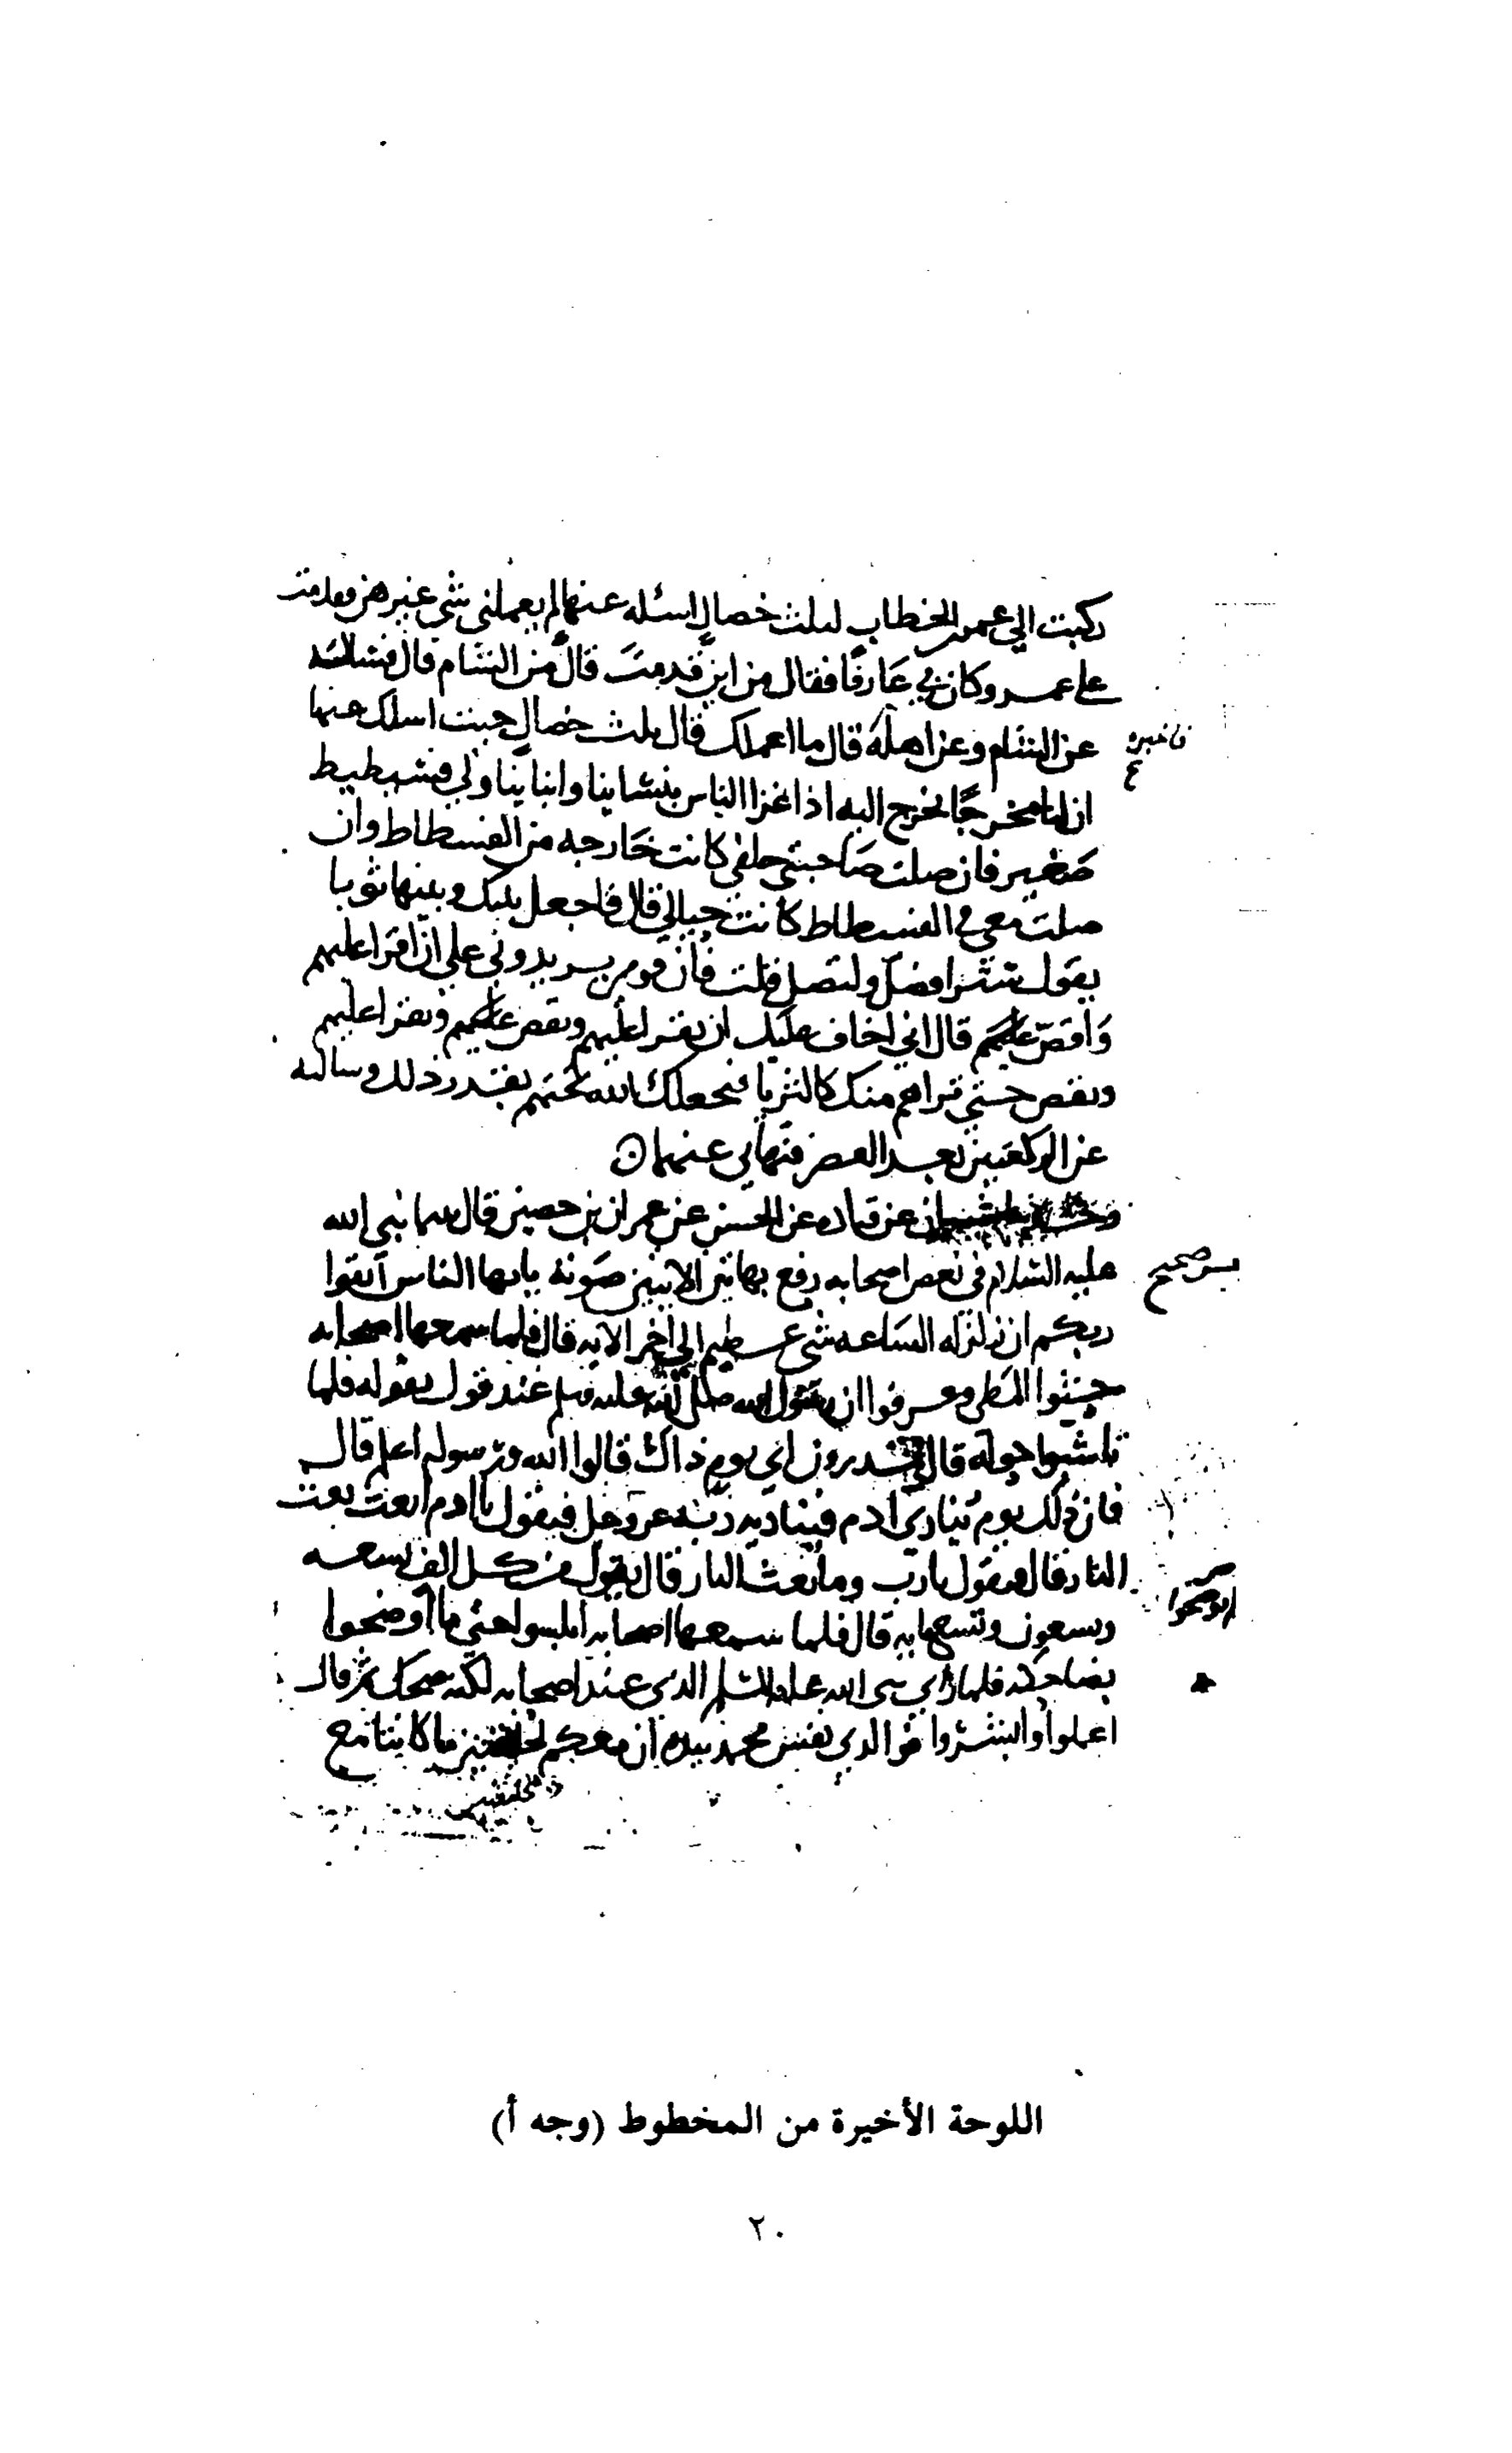 ركبت الي عمر بن الخطاب لثلث خصال اسئله عنها لم يعملني شي غيرهن فقدمت
علي عمر وكان بي عارفا فقال من اين قدمت قال من الشام قال
عن الشام وعن اهله قال ما اعملك قال ثلث خصال جيت اسلك عنها
فاخبره
ان لنا مخرجًا نخرج اليه اذا غزا الناس بنسائنا وابناينا ولي فسطيط
صغير فان صليت صاحبتي خلفي كانت خارجه من الفسطاط وان
صليت معي في الفسطاط كانت حيالي قال فاجعل بينك وبينها ثوبا
يقول ستراً وصل ولتصل قلت فان قومي يريدوني علي ان اقرا عليهم
واقص عليهم قال اني اخاف عليك ان تقرا عليهم وتقص عليهم وتقرا عليهم
وتقص حتي تراهم منك كالثريا فيجعلك الله تحتهم بقدر ذلك وسالته
عن الركعتين بعد العصر فنهاني عنهما ن
شيبان عن قتاده عن الحسن عن عمران بن حصين قال بينما نبي الله
عليه السلام في بعض اصحابه رفع بهاتين الايتين صوته يايها الناس اتقوا
صحيح
ربكم ان زلزله الساعه شي عظيم الي اخر الايه قال فلما سمعها اصحابه
حثوا المطي وعرفوا ان رسول الله صلى الله عليه وسلم عند قول يقوله فلما
تاشبوا حوله قال تدرون اي يوم ذاك قالوا الله ورسوله اعلم قال
فان ذلك يوم ينادي ادم فيناديه ربه عز وجل فيقول يا ادم ابعث بعث
النار قال فيقول يارب وما بعث النار قال يقول من كل الف تسعه
وتسعون وتسعمايه قال فلما سمعها اصحابه ابلسوا حتي ما اوضحوا
اوضحوا
بضاحكه فلما راي نبي الله عليه السلم الذي عند اصحابه ضحك ثم قال
اعملوا وابشروا فوالذي نفس محمد بيده ان معكم لخليقتين ما كانتا مع
لخليقتين
اللوحة الأخيرة من المخطوط (وجه أ)
٢٠